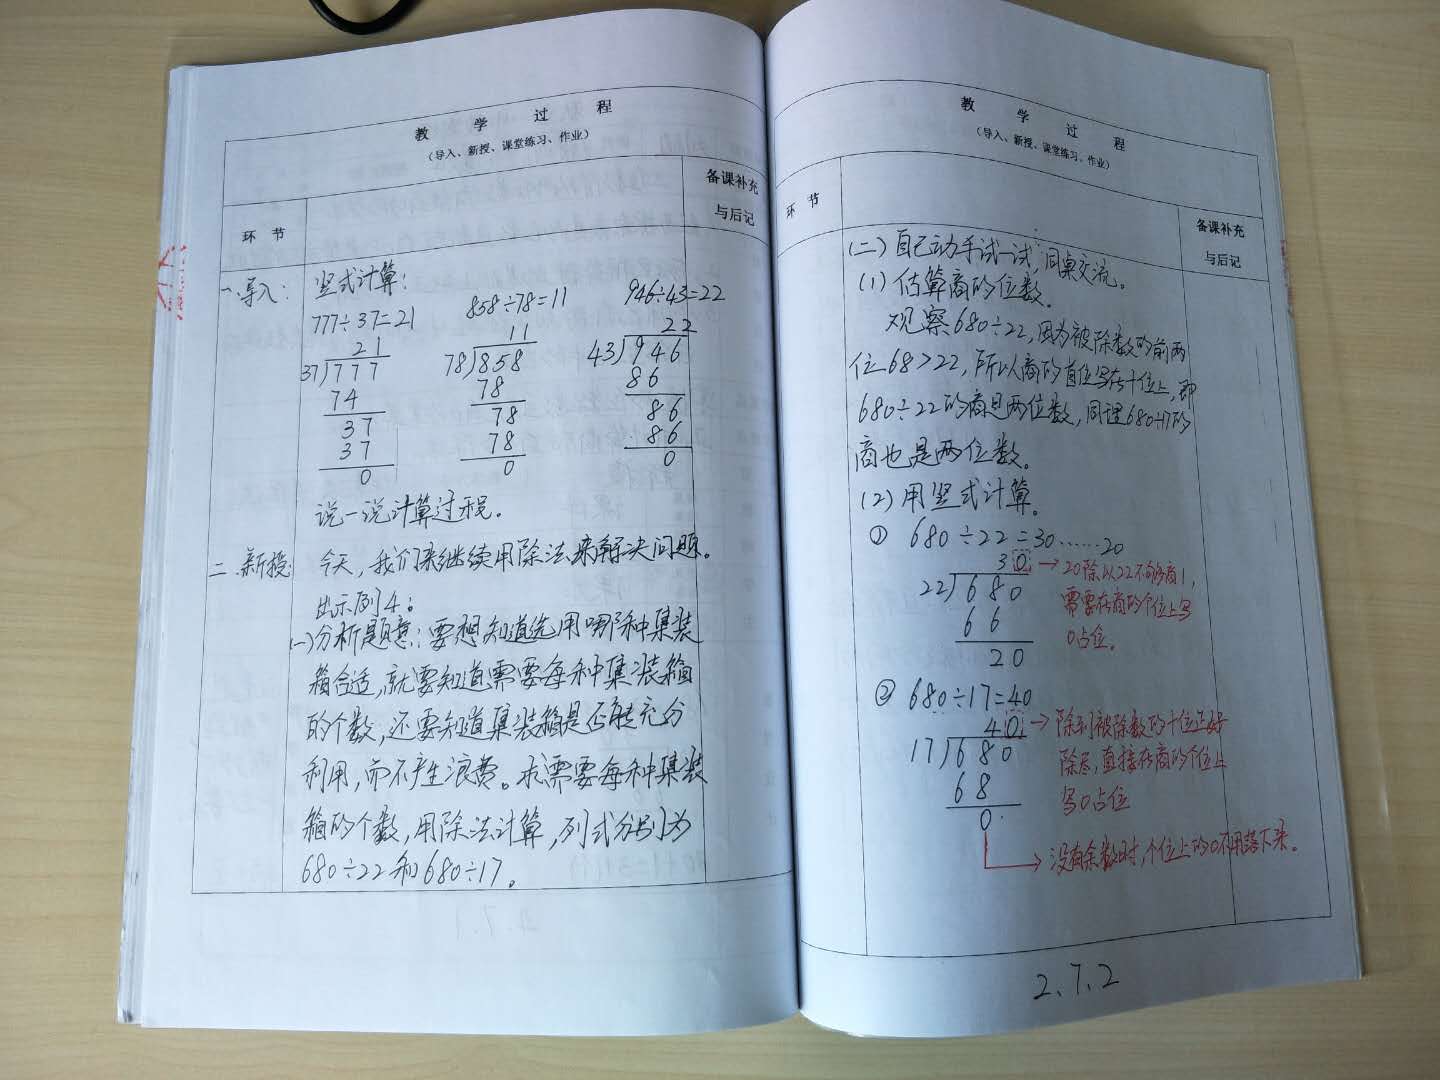 教 学 过 程
（导入、新授、课堂练习、作业）
环 节
备课补充
与后记
一.导入：
竖式计算：
777÷37=21
858÷78=11
946÷43=22
21
37)777
74
37
37
0
11
78)858
78
78
78
0
22
43)946
86
86
86
0
说一说计算过程。
二.新授：
今天，我们来继续用除法来解决问题。
出示例4：
(一)分析题意：要想知道选用哪种集装
箱合适，就要知道需要每种集装箱
的个数，还要知道集装箱是否能充分
利用，而不产生浪费。求需要每种集装
箱的个数，用除法计算，列式分别为
680÷22和680÷17。
教 学 过 程
（导入、新授、课堂练习、作业）
环 节
备课补充
与后记
(二)自己动手试一试，同桌交流。
(1)估算商的位数。
观察680÷22，因为被除数的前两
位68>22，所以商的首位写在十位上，即
680÷22的商是两位数，同理680÷17的
商也是两位数。
(2)用竖式计算。
① 680÷22=30……20
30
22)680
66
20
→20除以22不够商1，
需要在商的个位上写
0占位。
② 680÷17=40
40
17)680
68
0
→除到被除数的十位正好
除尽，直接在商的个位上
写0占位
→没有余数时，个位上的0不用落下来。
2.7.2